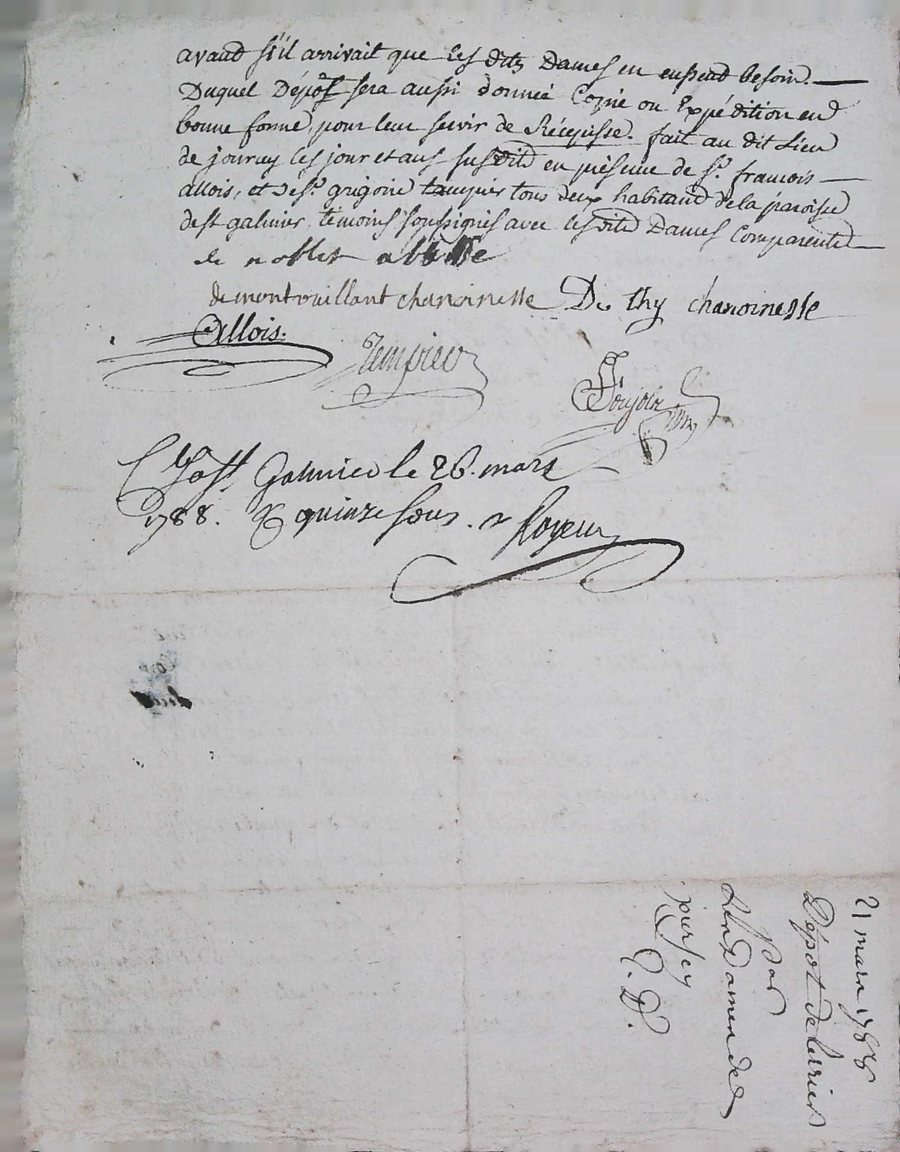 avant s'il arrivait que les dits Dames en eussent besoin.
Duquel Dépost sera aussi donnée Copie ou Expédition en
bonne forme, pour leur servir de Récépisse. fait au dit Lieu
de jourcey les jour et ans susdits en présence de Sr. francois
allois, et de sr. grigoire tampier tous deux habitand de la paroisse
de st galmier témoins soussignés avec lesdits Dames Comparentes
de nobles abbesse
de montrouillant chanoinesse De thy chanoinesse
Allois.
Tempier
Galmier le 26. mars
1788. quinze sous.
21 mars 1788
Dépot de
par
les Dames de
jursey